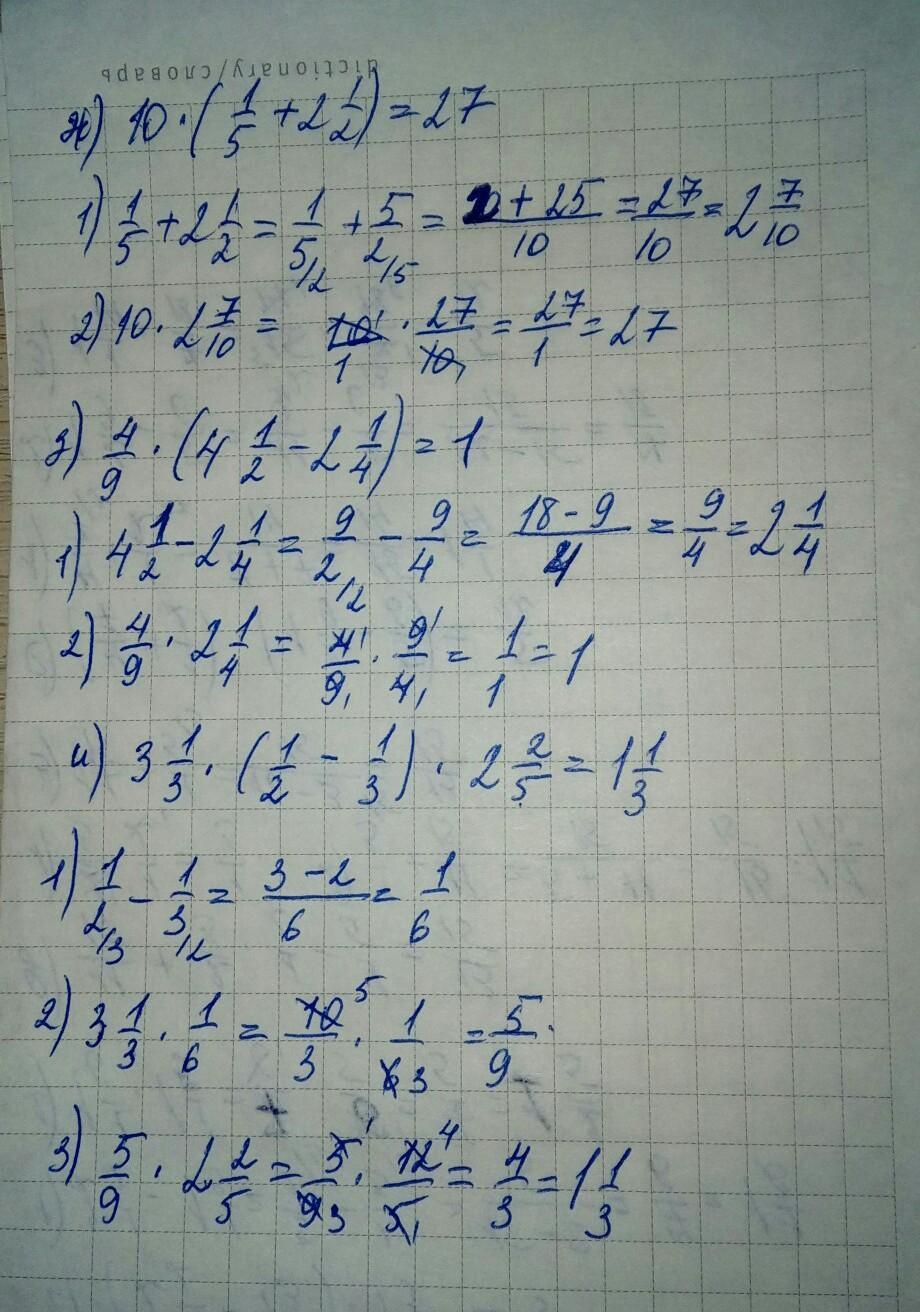 dictionary/словарь
ж) 10 · (1/5 + 2 1/2) = 27
1) 1/5 + 2 1/2 = 1/5/2 + 5/2/5 = 2 + 25/10 = 27/10 = 2 7/10
2) 10 · 2 7/10 = 10 1/1 · 27/10 1 = 27/1 = 27
з) 4/9 · (4 1/2 - 2 1/4) = 1
1) 4 1/2 - 2 1/4 = 9/2/2 - 9/4 = 18 - 9/4 = 9/4 = 2 1/4
2) 4/9 · 2 1/4 = 4 1/9 1 · 9 1/4 1 = 1/1 = 1
и) 3 1/3 · (1/2 - 1/3) · 2 2/5 = 1 1/3
1) 1/2/3 - 1/3/2 = 3 - 2/6 = 1/6
2) 3 1/3 · 1/6 = 10 5/3 · 1/6 3 = 5/9.
3) 5/9 · 2 2/5 = 5 1/9 3 · 12 4/5 1 = 4/3 = 1 1/3